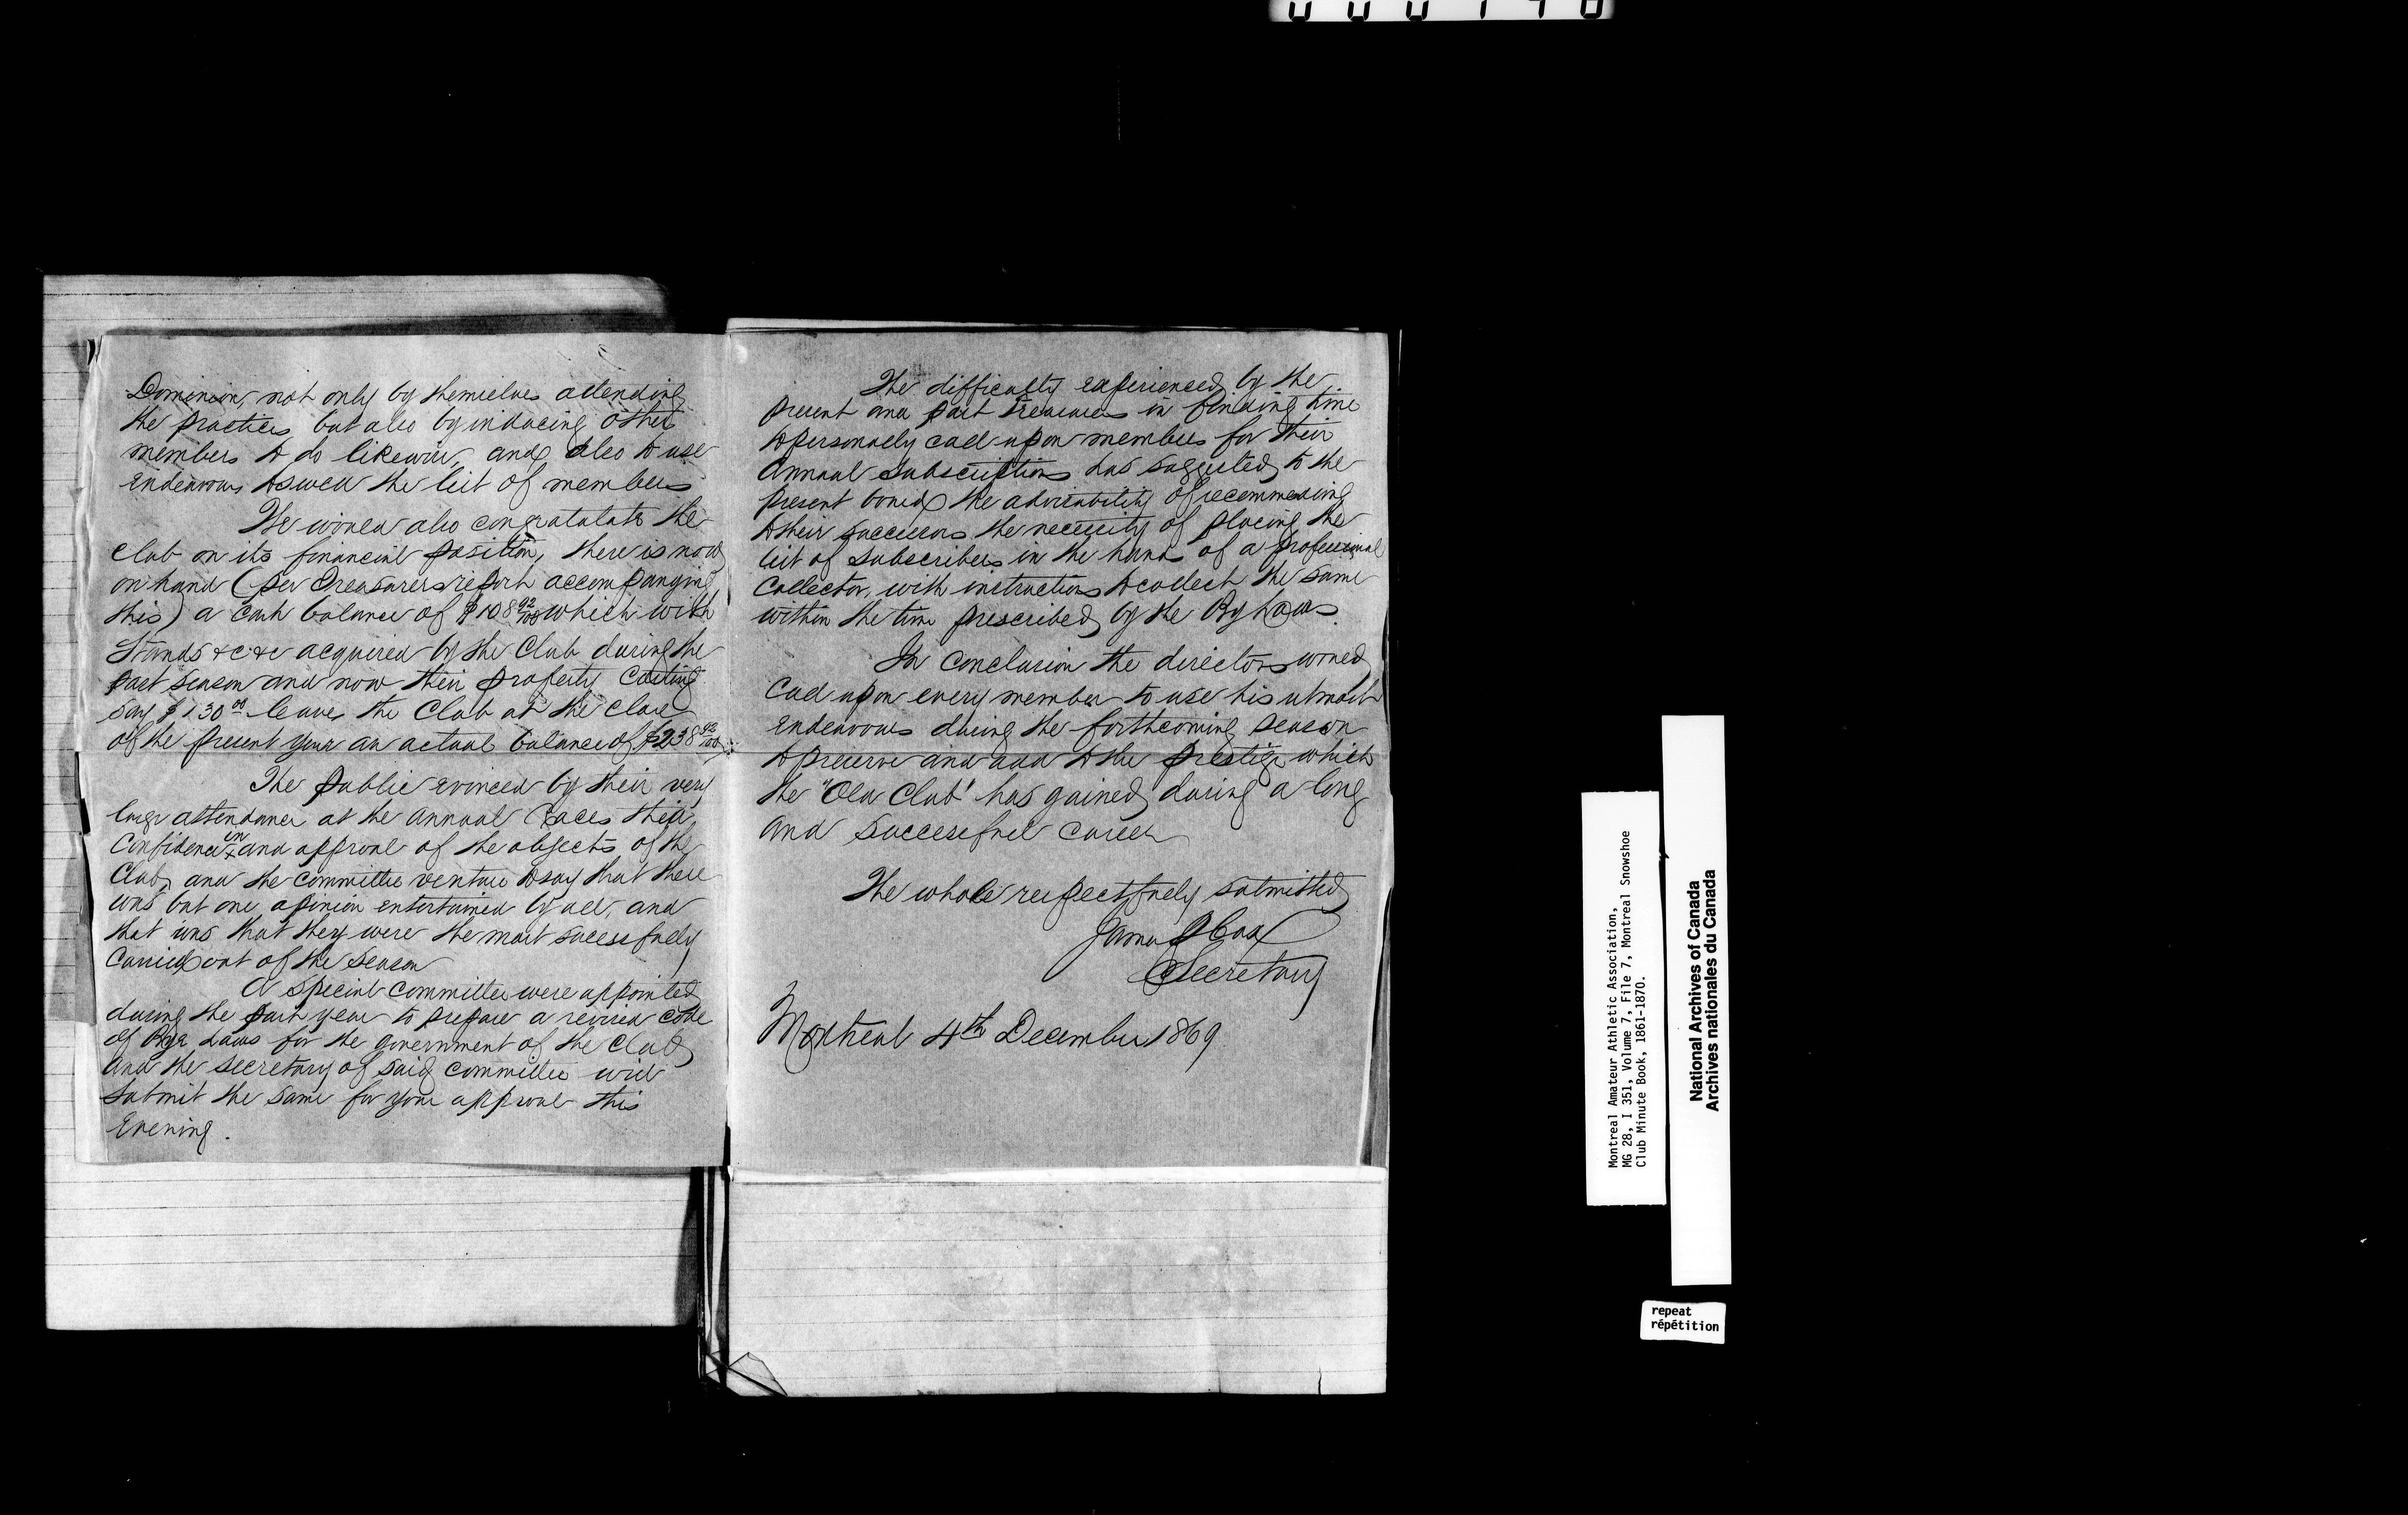 Dominion, not only by themselves attending
the practices but also by inducing other
members to do likewise, and also to use
endeavours to swell the list of members
We would also congratulate the
Club on its financial position, there is now
on hand (per Treasurers report accompanying
this) a cash balance of $108 92/100 which with
Stands &c &c acquired by the Club during the
past season and now their property costing
say $130 00 leaves the Club at the close
of the present year an actual balance of $238 92/100
The public evinced by their very
large attendance at the annual Races their
Confidence in and approval of the objects of the
Club, and the committee venture to say that there
was but one opinion entertained by all, and
that was that they were the most sucessfully
Carried out of the season
A special committee were appointed
during the past year to prepare a revised code
of Bye Laws for the government of the Club
and the secretary of said committee will
submit the same for your approval this
Evening.
The difficulty experienced by the
present and past Treasurers in finding time
to personally call upon members for their
Annual Subscriptions has suggested to the
present board the advisability of recommending
to their successors the necessity of placing the
list of subscribers in the hands of a professional
Collector, with instructions to collect the same
within the time prescribed by the By Laws.
In conclusion the directors would
Call upon every member to use his utmost
endeavours during the forthcoming season
to preserve and add to the prestige which
the "Old Club" has gained during a long
and successful career
The whole respectfully submitted
James
Secretary
Montreal 4th December 1869
Montreal Amateur Athletic Association,
MG 28, I 351, Volume 7, File 7, Montreal Snowshoe
Club Minute Book, 1861-1870.
National Archives of Canada
Archives nationales du Canada
repeat
répétition